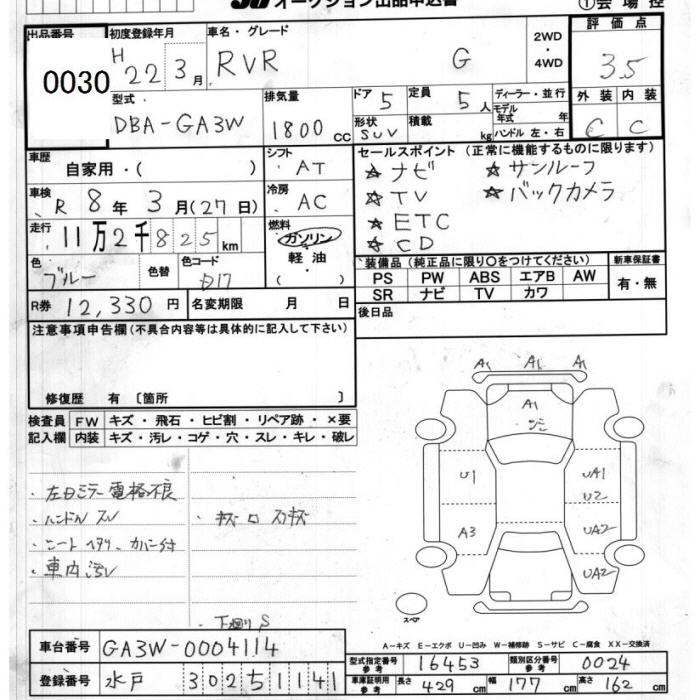 オークション出品申込書 ①会場控
出品番号 初度登録年月 車名・グレード 2WD・4WD 評価点
0030 H 22 3月 RVR G 3.5
型式 排気量 ドア 5 定員 5人 ディーラー・並行 外装 内装
DBA-GA3W 1800cc 形状 SUV 積載 kg モデル年式 年 ハンドル 左・右 C C
車歴 自家用・( ) シフト AT セールスポイント (正常に機能するものに限ります)
☆ナビ ☆サンルーフ
車検 R 8年 3月(27日) 冷房 AC ☆TV ☆バックカメラ
走行 11万2千825km 燃料 ガソリン・軽油・( ) ☆ETC
☆CD
色 ブルー 色替 色コード D17
装備品 (純正品に限り○をつけてください) 新車保証書
PS PW ABS エアB AW 有・無
SR ナビ TV カワ
R券 12,330円 名変期限 月 日 後日品
注意事項申告欄(不具合内容等は具体的に記入して下さい)
修復歴 有〔箇所 〕
検査員記入欄 FW キズ・飛石・ヒビ割・リペア跡・×要
内装 キズ・汚レ・コゲ・穴・スレ・キレ・破レ
A1 A1 A1
A1
U1 UA1
U2
A3 UA2
UA2
スペア
・左ドアミラー電格不良
・ハンドル スレ ・キズ
・シート ヘタリ、カバー付
・車内汚レ
・下廻り S
車台番号 GA3W-0004114
A-キズ E-エクボ U-凹み W-補修跡 S-サビ C-腐食 XX-交換済
型式指定番号 参考 16453 類別区分番号 参考 0024
登録番号 水戸 302 51141
車庫証明取得用 参考 長さ 429cm 幅 177cm 高さ 162cm